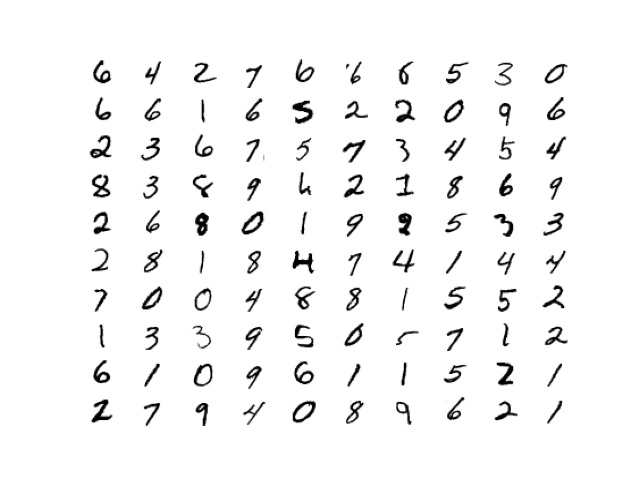 6 4 2 7 6 6 6 5 3 0
6 6 1 6 5 2 2 0 9 6
2 3 6 7 5 7 3 4 5 4
8 3 8 9 2 1 8 6 9
2 6 8 0 1 9 9 5 3 3
2 8 1 8 4 7 4 1 4 4
7 0 0 4 8 8 1 5 5 2
1 3 3 9 5 0 5 7 1 2
6 1 0 9 6 1 1 5 2 1
2 7 9 4 0 8 9 6 2 1